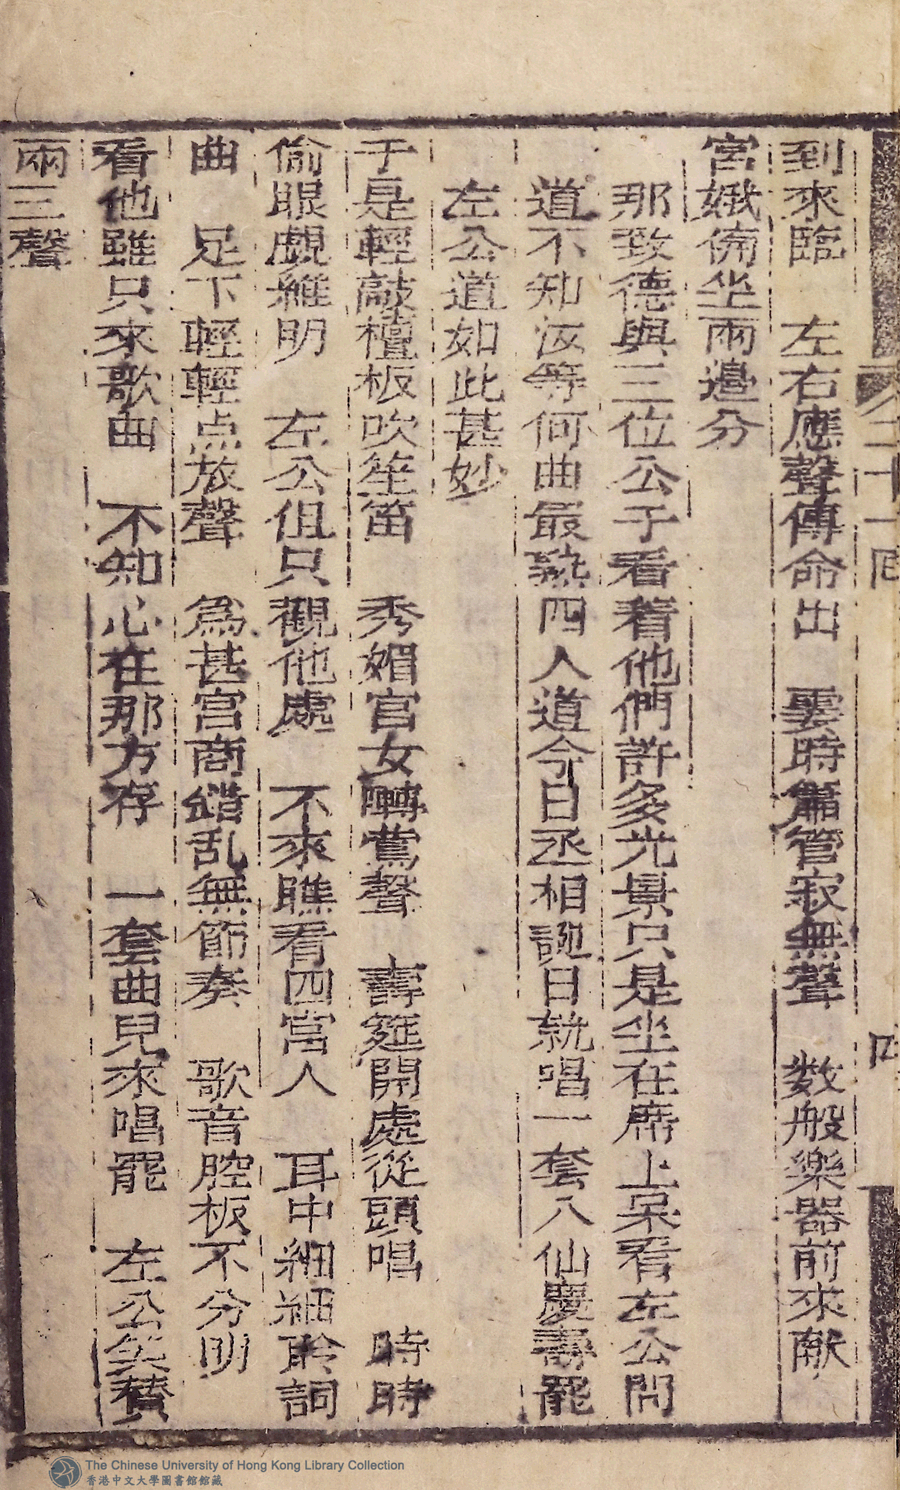 二十一囘
四
到來臨　左右應聲傳命出　霎時簫管寂無聲　数般樂器前來献
宮娥俻坐兩邉分
那致德與三位公子看着他們許多光景只是坐在席上呆看左公問
道不知汝等何曲最熟四人道今日丞相誕日就唱一套八仙慶壽罷
左公道如此甚妙
于是輕敲檀板吹笙笛　秀媚官女囀鶯聲　壽筵開處從頭唱　時時
偷眼覷維明　左公但只觀他處　不來瞧看四宮人　耳中細細聆詞
曲　足下輕輕点放聲　為甚宮商錯乱無節奏　歌音腔板不分明
看他雖只來歌曲　不知心在那方存　一套曲兒來唱罷　左公笑賛
兩三聲
The Chinese University of Hong Kong Library Collection
香港中文大學圖書館館藏